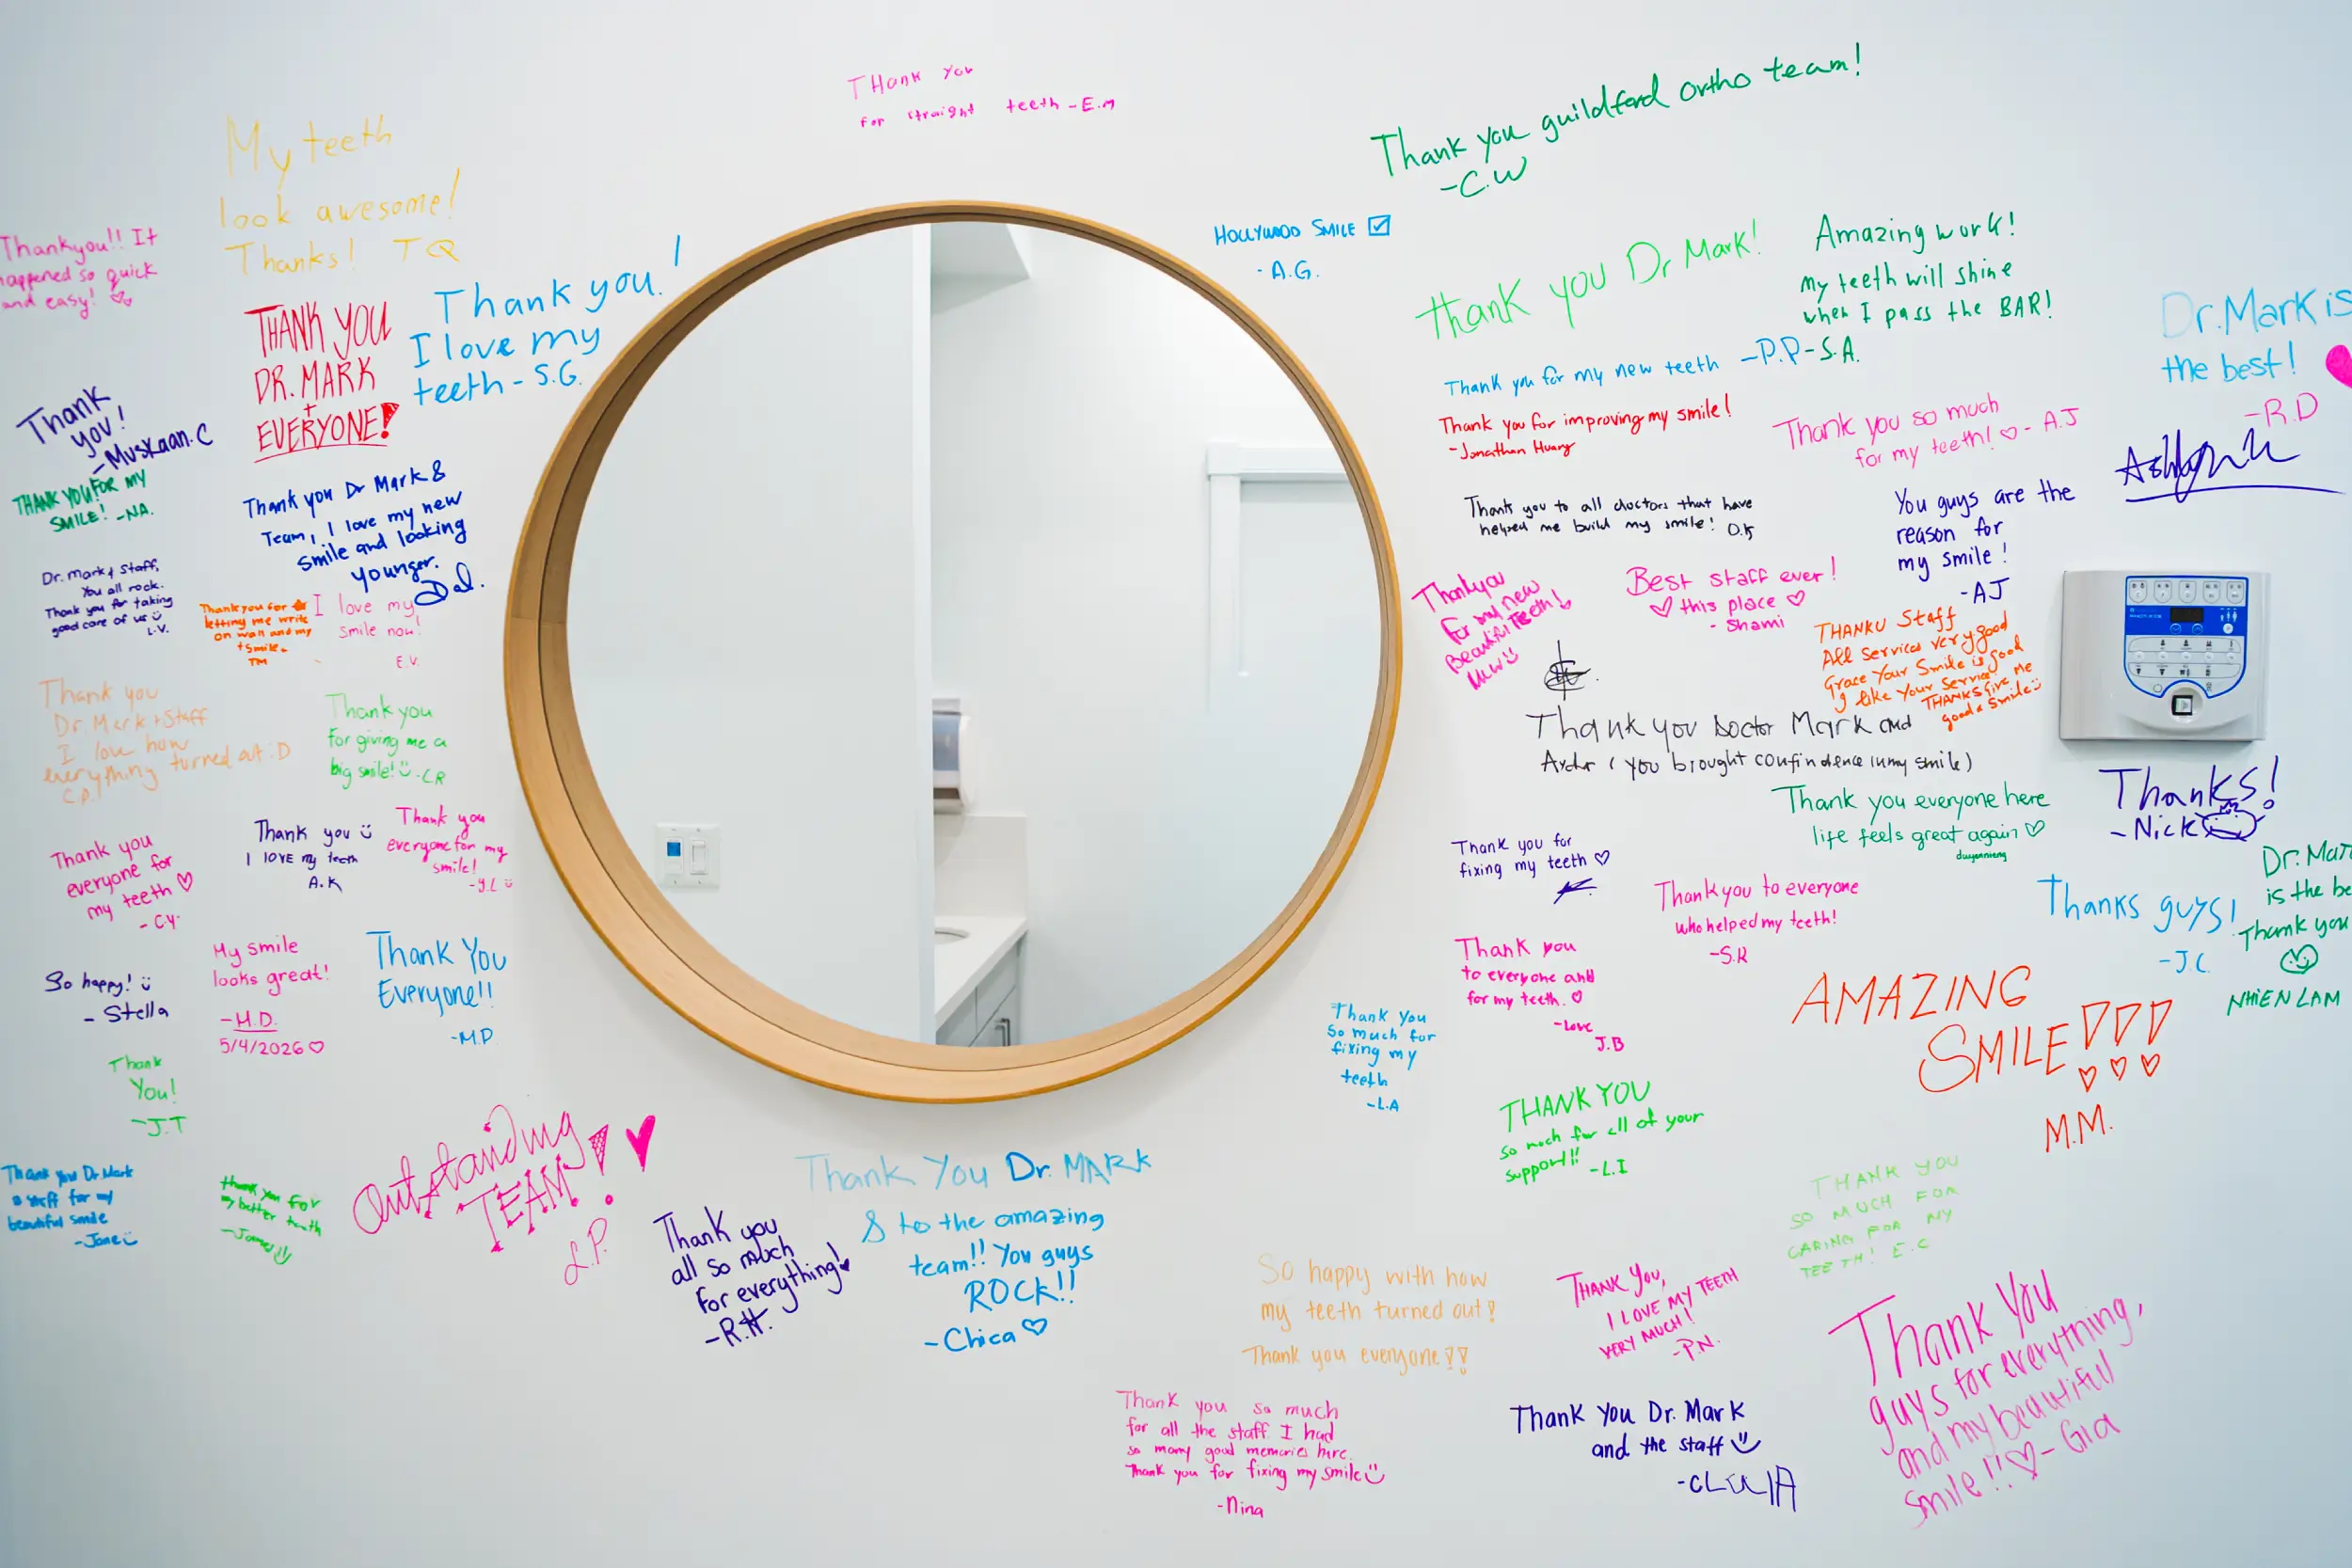 THank You
for straight teeth - E.M
Thank you guildford ortho team!
-C.W
My teeth
look awesome!
Thanks! TQ
Thankyou!! It
happened so quick
and easy!
THANK YOU
DR. MARK
+
EVERYONE!
Thank you!
I love my
teeth - S.G.
HOLLYWOOD SMILE
- A.G.
thank you Dr Mark!
Amazing work!
My teeth will shine
when I pass the BAR!
-S.A.
Thank you for my new teeth -P.P
Dr. Mark is
the best!
-R.D
Thank you for improving my smile!
-Jonathan Huang
Thank you so much
for my teeth! ♡ - A.J
Thank
you!
-Muskaan.C
THANK YOU FOR MY
SMILE! -NA.
Thank you Dr Mark &
Team, I love my new
smile and looking
younger.
Dal.
Thank you to all doctors that have
helped me build my smile! O.K
You guys are the
reason for
my smile!
-AJ
Dr. Mark & Staff,
You all rock.
Thank you for taking
good care of us
L.V.
Thank you for
letting me write
on wall and my
+ smile.
TM
I love my
smile now!
E.V.
Thankyou
For my new
Beautiful Teeth!
MLW
Best staff ever!
♡ this place ♡
- Shami
THANKU Staff
All Services very good
Grace Your Smile is good
I like Your Service
THANKS Give Me
good a Smile
Thank you
Dr. Mark + Staff
I love how
everything turned out :D
C.P.!
Thank you
for giving me a
big smile! -CR
Thank you Doctor Mark and
(you brought confindence in my smile)
Thank you everyone here
life feels great again ♡
Thanks!
-Nick
Thank you
everyone for
my teeth ♡
- C.Y.
Thank you
I lOVE my teeth
A.K
Thank you
everyone for my
smile!
-Y.L
Thank you for
fixing my teeth ♡
Thank you to everyone
who helped my teeth!
-S.R
Thanks guys!
-J.C.
Dr. Mar
is the be
Thank you
NHiEN LAM
So happy!
- Stella
My smile
looks great!
-M.D.
5/4/2026 ♡
Thank You
Everyone!!
-M.D
Thank you
to everyone and
for my teeth. ♡
-Love
J.B
Thank you
so much for
fixing my
teeth
-L.A
AMAZING
SMILE!!!
M.M.
Thank
You!
-J.T
THANK YOU
so much for all of your
support!! -L.I
Thank you Dr. Mark
& staff for my
beautiful smile
-Jane
thank you for
my better teeth
-James
Outstanding
TEAM!!
L.P.
Thank You Dr. MARK
& to the amazing
team!! You guys
ROCK!!
-Chica ♡
Thank you
all so much
for everything!
-R.H.
THANK YOU
SO MUCH FOR
CARING FOR MY
TEETH! E.C
So happy with how
my teeth turned out!
Thank you everyone!!
THANK YOU,
I LOVE MY TEETH
VERY MUCH!
-P.N.
Thank you
guys for everything,
and my beautiful
smile!! ♡ - Gia
Thank you so much
for all the staff. I had
so many good memories here.
Thank you for fixing my smile
-Nina
Thank You Dr. Mark
and the staff